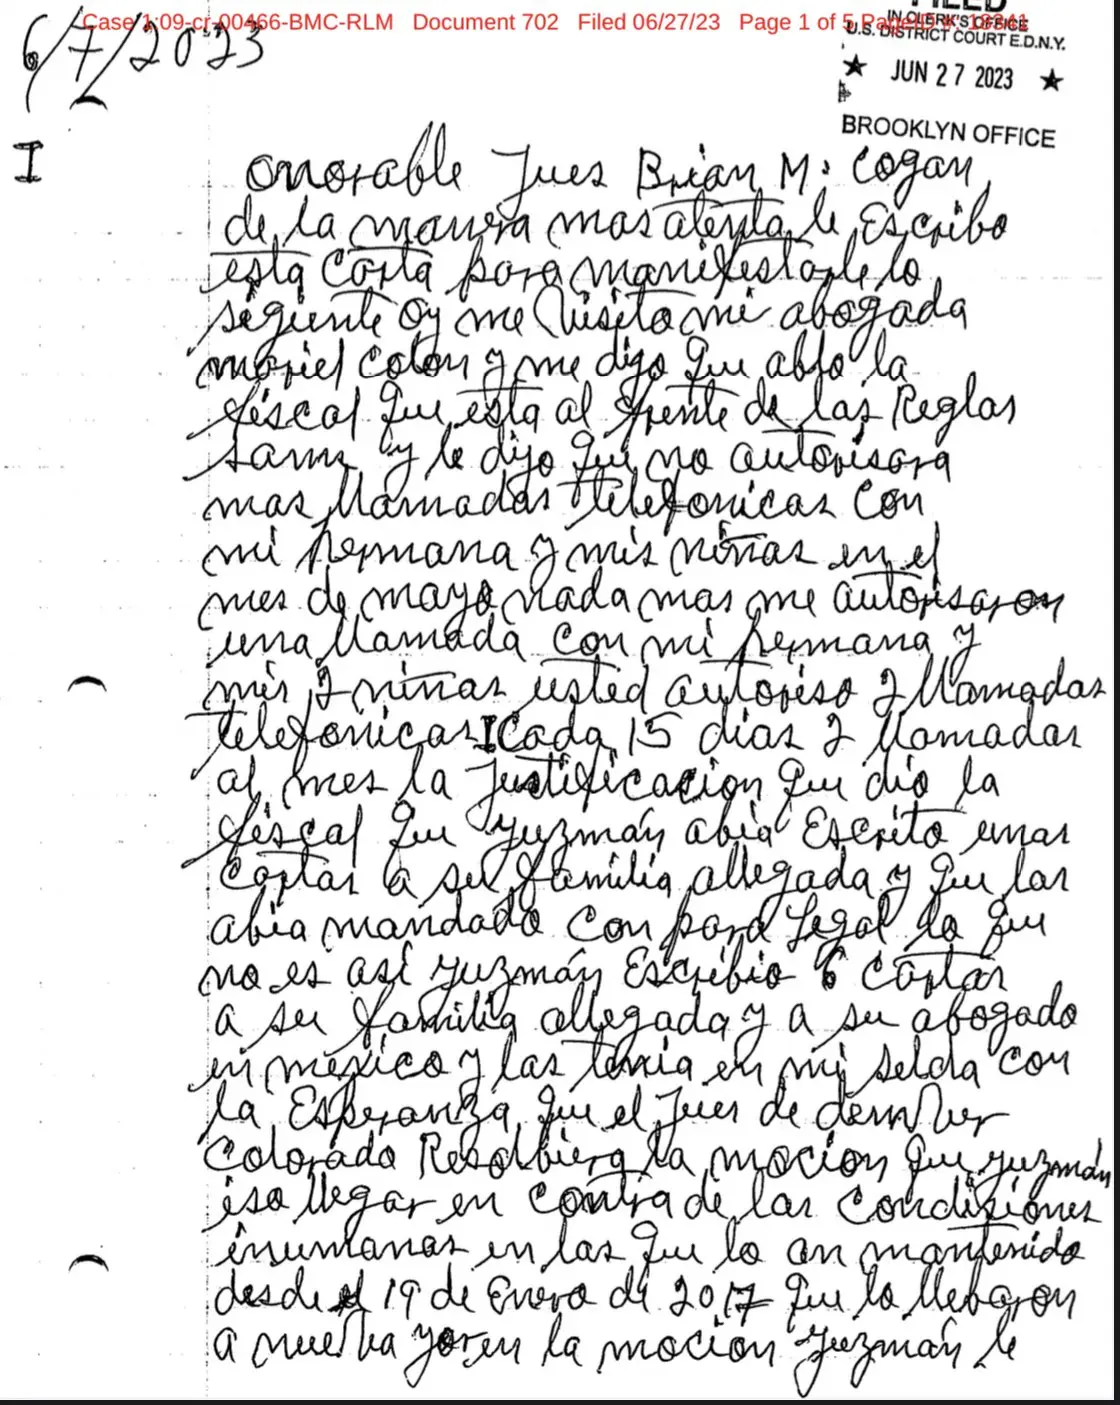 Case 1:09-cr-00466-BMC-RLM Document 702 Filed 06/27/23 Page 1 of 5 PageID
FILED
IN CLERK'S OFFICE
U.S. DISTRICT COURT E.D.N.Y.
★ JUN 27 2023 ★
BROOKLYN OFFICE
6/7/2023
I
onorable Jues Brian M. Cogan
de la manera mas atenta le Escribo
esta Carta para manifestarle lo
sigiente oy me Visito mi abogada
mariel Colon y me dijo Que ablo la
fiscal Que esta al frente de las Reglas
sams y le dijo Que no autorisara
mas llamadas telefonicas Con
mi hermana y mis niñas en el
mes de mayo nada mas me autorisaron
una llamada con mi hermana y
mis 2 niñas usted autoriso 2 llamadas
telefonicas I Cada 15 dias 2 llamadas
al mes la Justificacion Que dio la
fiscal Que yuzmán abia Escrito unas
Cartas a su familia allegada y Que las
abia mandado Con para Legal lo Que
no es así yuzmán Escribio 6 Cartas
a su familia allegada y a su abogado
en mexico y las tenia en mi selda con
la Esperanza Que el Jues de demvver
Colorado Resolbiera la mocion Que yuzmán
iso llegar en contra de las Condisiones
inumanas en las Que lo an mantenido
desde el 19 de Enero de 2017 Que lo llebaron
a nueba yor en la mocion yuzmán le